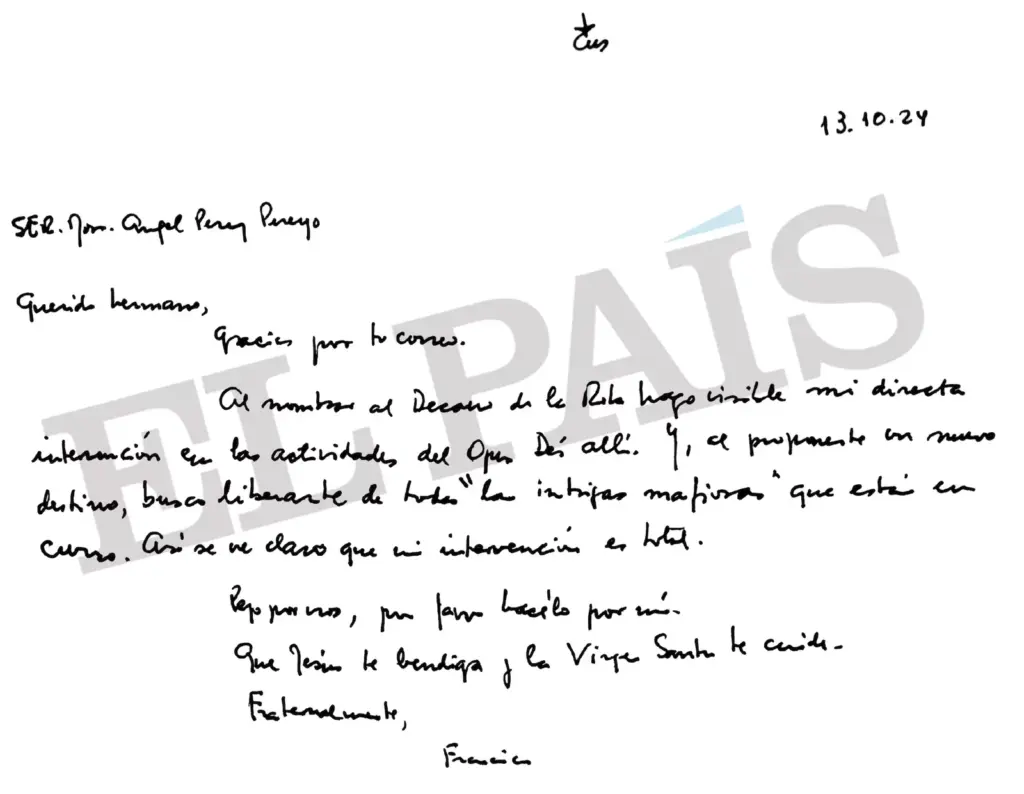 13.10.24
S.E.R. Mons. Angel Perez Pueyo
Querido hermano,
gracias por tu correo.
Al nombrar al Decano de la Rota hago visible mi directa
intervención en las actividades del Opus Dei allí. Y, al proponerte un nuevo
destino, busco liberarte de todas "las intrigas mafiosas" que están en
curso. Así se ve claro que mi intervención es total.
Rezo por vos, por favor hacélo por mí.
Que Jesús te bendiga y la Virgen Santa te cuide.
Fraternalmente,
Francisco
EL PAÍS